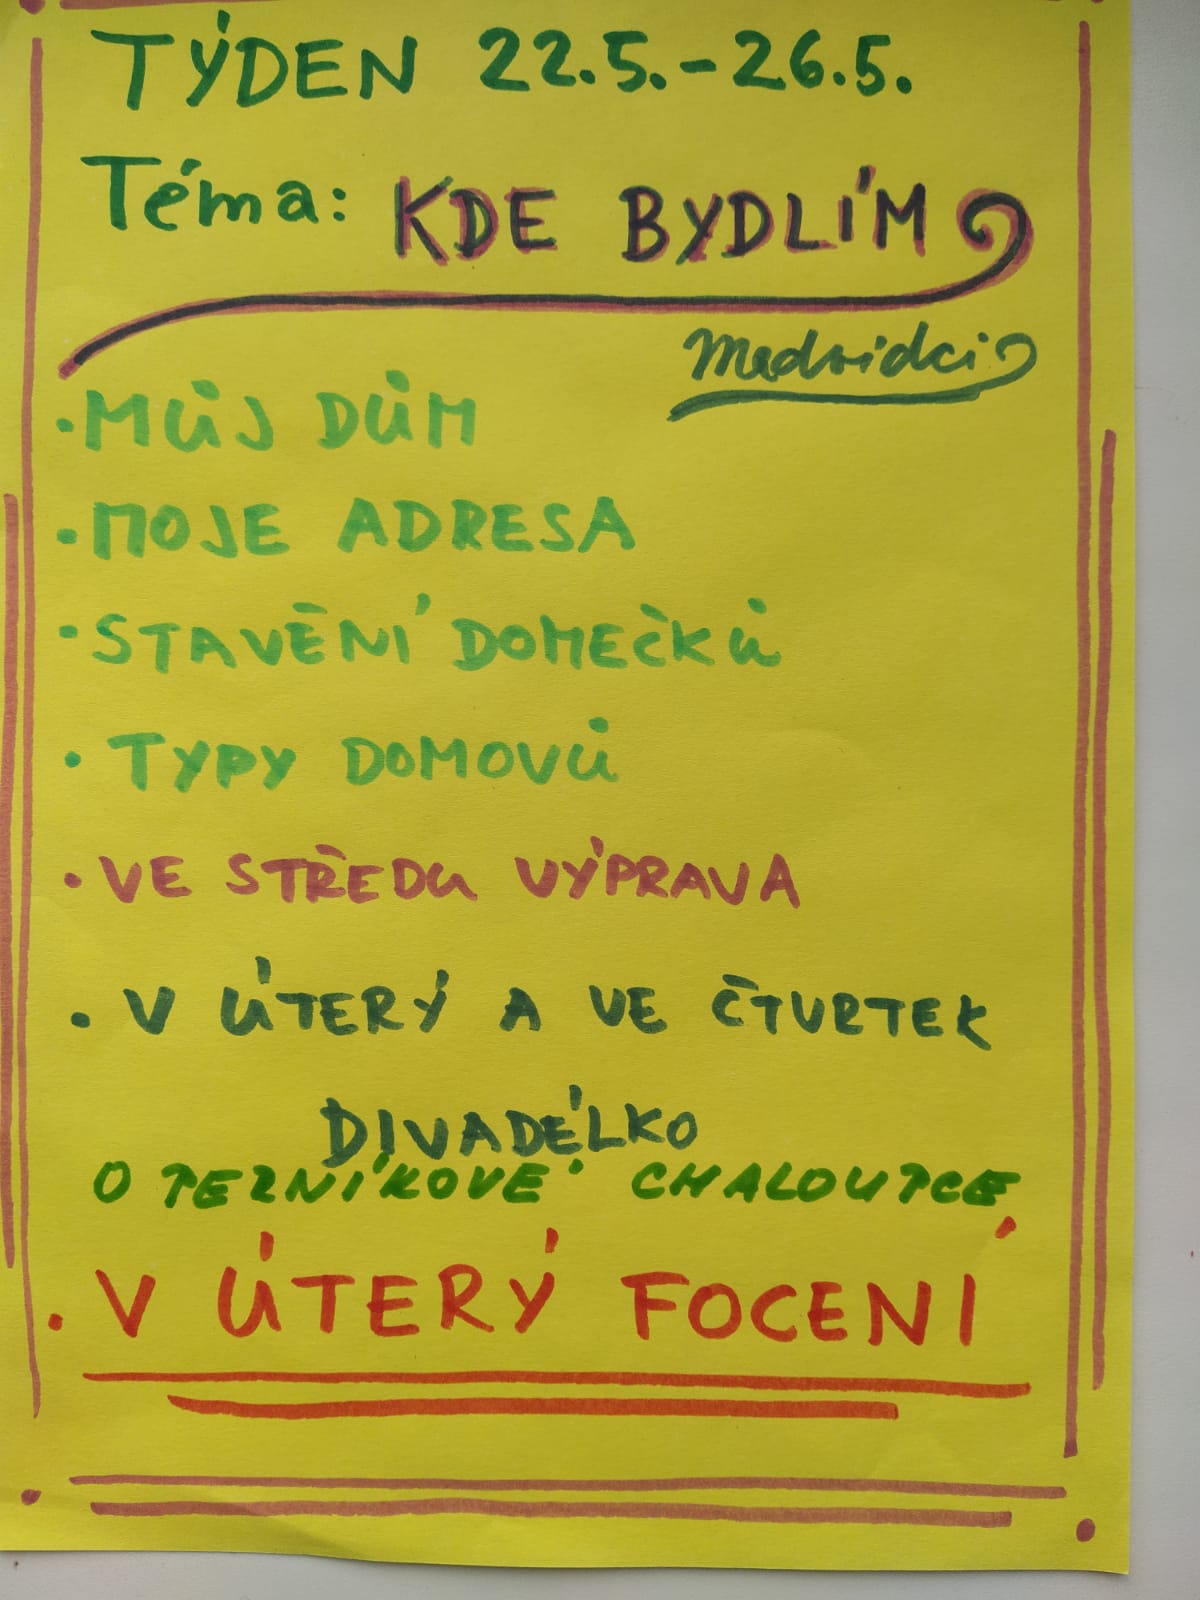 TÝDEN 22.5.-26.5.
Téma: KDE BYDLÍM
Medvídci
• MŮJ DŮM
• MOJE ADRESA
• STAVĚNÍ DOMEČKŮ
• TYPY DOMOVŮ
• VE STŘEDU VÝPRAVA
• V ÚTERÝ A VE ČTVRTEK
DIVADÉLKO
O PERNÍKOVÉ CHALOUPCE
• V ÚTERÝ FOCENÍ